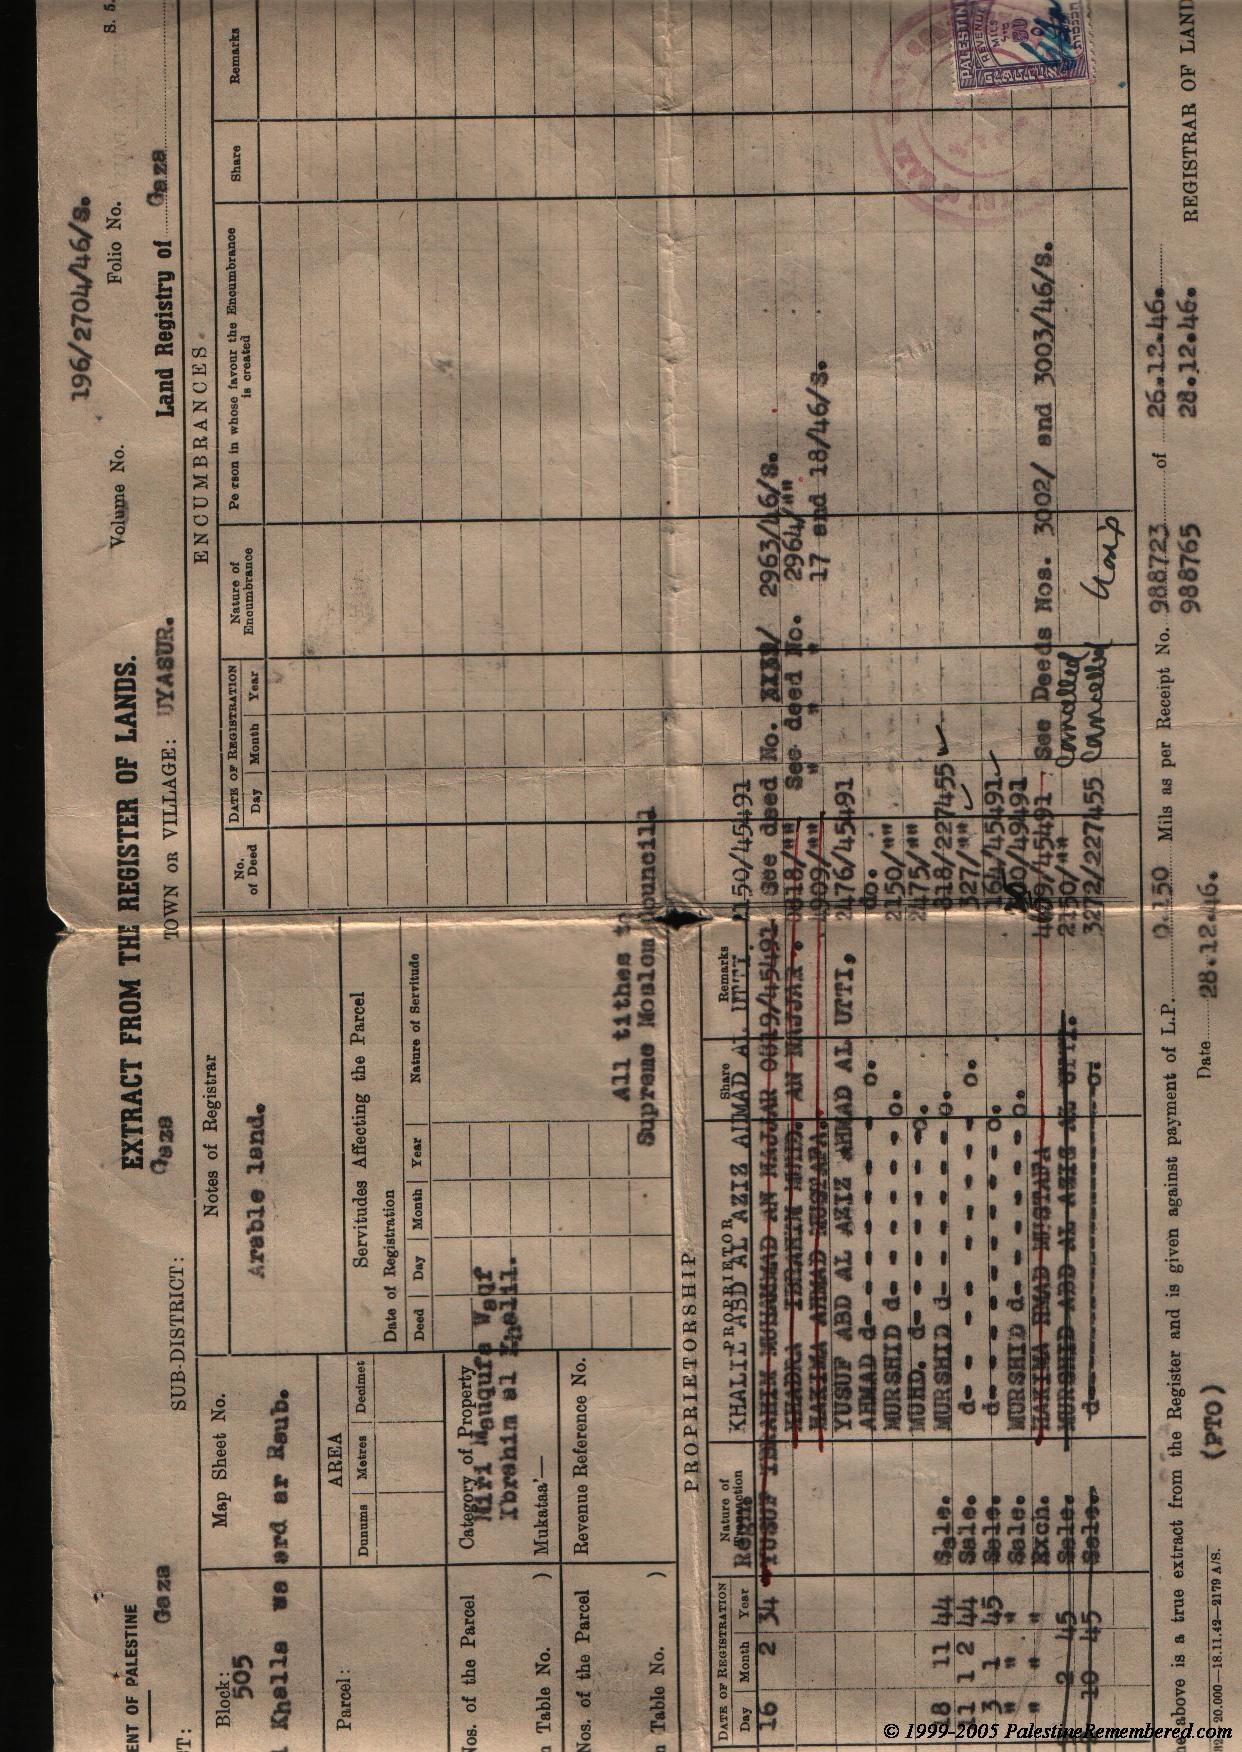 S. 5.
196/2704/46/S.
MENT OF PALESTINE
EXTRACT FROM THE REGISTER OF LANDS.
Volume No. Folio No.
Gaza SUB-DISTRICT: Gaza TOWN OR VILLAGE: UYASUR. Land Registry of Gaza
Block: 505
Khella wa ard ar Raub.
Map Sheet No.
Notes of Registrar
Arable land.
Parcel:
AREA
Dunums Metres Decimet
Servitudes Affecting the Parcel
Date of Registration
Deed Day Month Year Nature of Servitude
Nos. of the Parcel
Table No. )
Category of Property
Miri Mauqufa Waqf
Ibrahim al Khalil.
Mukataa'—
Nos. of the Parcel
Table No. )
Revenue Reference No.
All tithes to
Supreme Moslem
ENCUMBRANCES.
No. of Deed
DATE OF REGISTRATION
Day Month Year
Nature of Encumbrance
Person in whose favour the Encumbrance is created
Share
Remarks
PROPRIETORSHIP
DATE OF REGISTRATION
Day Month Year
Nature of Transaction
PROPRIETOR
Share
Remarks
16 2 34 KHALIL ABD AL AZIZ AHMAD AL UTTI. 2150/45491
YUSUF IBRAHIM MUHAMMAD AN NAJJAR See deed No. 2963/46/S.
KHADRA IBRAHIM MUHD. AN NAJJAR. 818/"" See deed No. 2964/""
HAKIMA AHMAD MUSTAFA. 4909/"" " " " 17 and 18/46/S.
YUSUF ABD AL AZIZ AHMAD AL UTTI, 2476/45491
AHMAD d- - - - - - - o. do.
MURSHID d- - - - - - o. 2150/""
MUHD. d- - - - - - - o. 2475/""
18 11 44 Sale. MURSHID d- - - - - - o. 818/227455
11 12 44 Sale. d- - - - - - - o. 327/""
3 1 45 Sale. d- - - - - - - o. 164/45491
" " " Sale. MURSHID d- - - - - - o. 49491
" " " Exch. HAKIMA MUSTAFA 45491 See Deeds Nos. 3002/ and 3003/46/S.
2 45 Sale. MURSHID ABD AL AZIZ AL UTTI. 2150/"" Cancelled
10 45 Sale. d- - - - - - - o. 3272/227455 Cancelled
PALESTINE
REVENUE
MILS
50
above is a true extract from the Register and is given against payment of L.P. 0.150 Mils as per Receipt No. 988723 of 26.12.46.
988765 28.12.46.
(PTO)
Date 28.12.46.
REGISTRAR OF LAND
20.000—18.11.42—2179 A/S.
© 1999-2005 PalestineRemembered.com